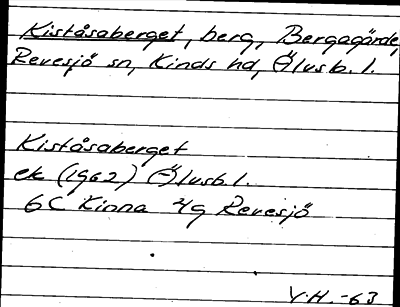 Kiståsaberget, berg, Bergagärde,
Revesjö sn, Kinds hd, Älvsb. l.
Kiståsaberget
ek (1962) Älvsb. l.
6C Kinna 4g Revesjö
V.H. -63